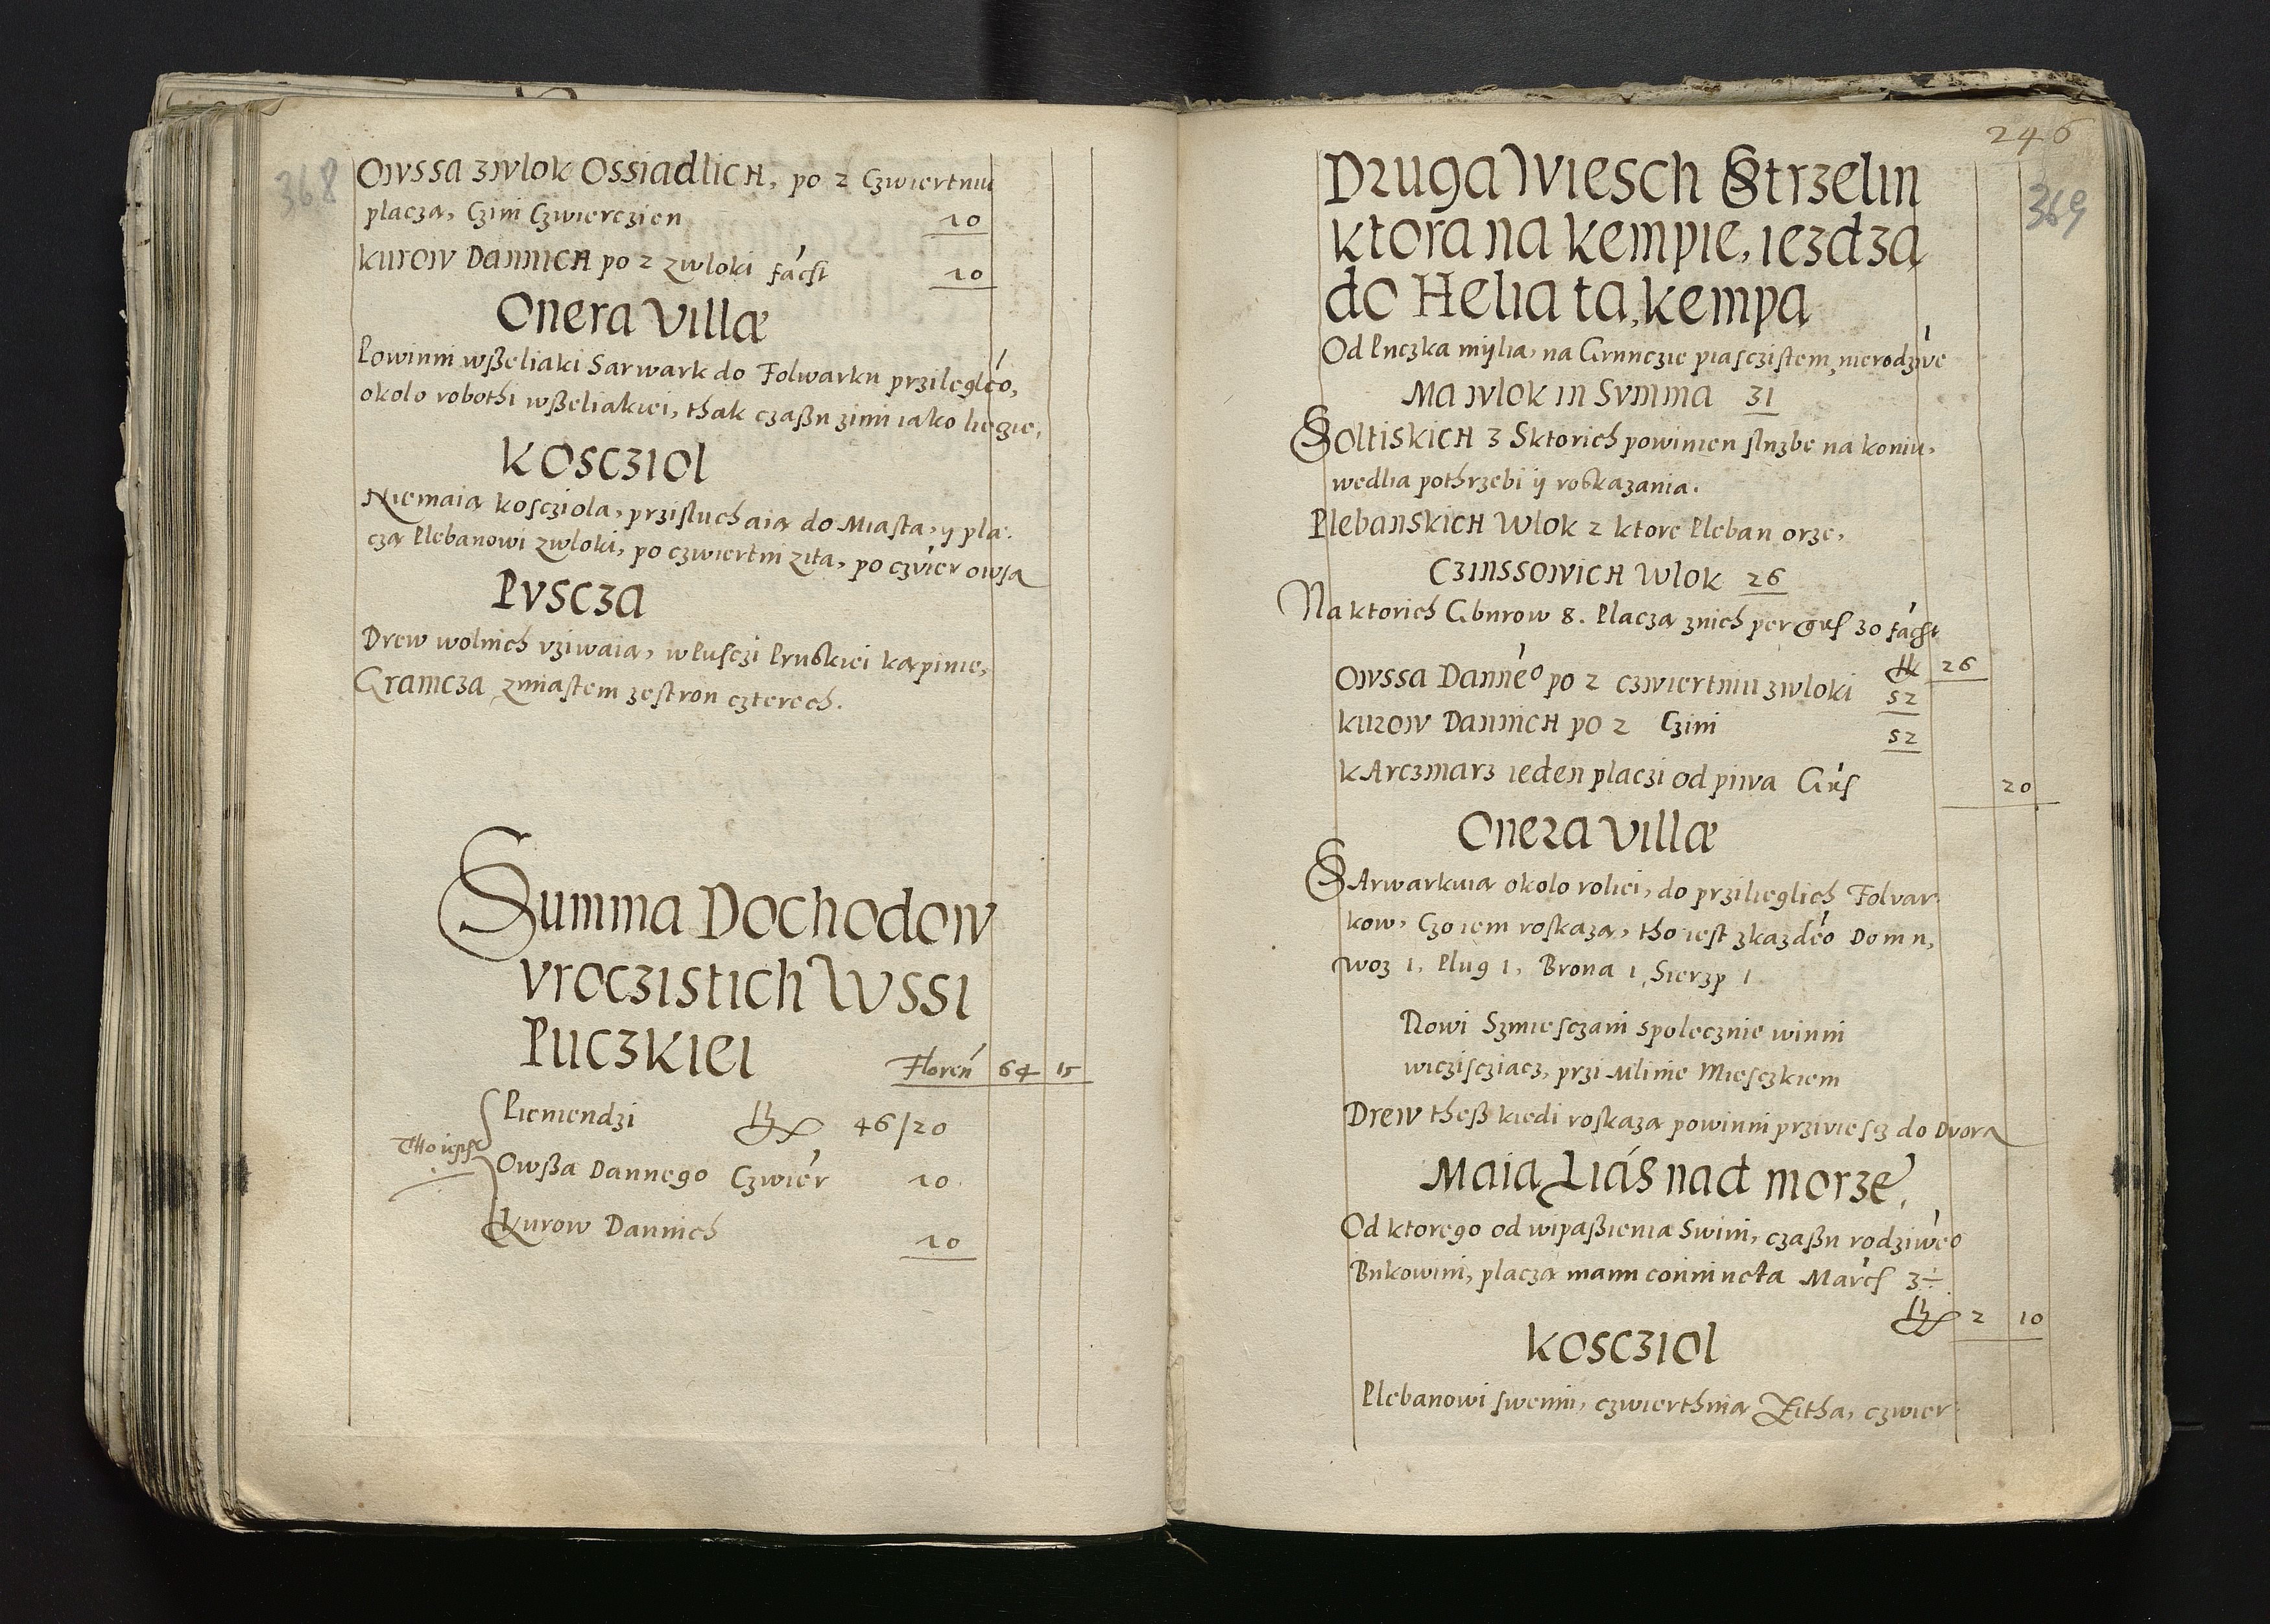 368
Owssa zwlok Ossiadlich, po 2 Czwiertniu
placza, Czini Czwierczien 10
kurow Dannich po 2 zwloki facst 10
Onera Villæ
Powinni wßeliaki Sarwark do Folwarku prziległeo,
okolo robothi wßeliakiei, thak czaßu zimi iako liezie,
Koscziol
Niemaią koscziola, przisluchaią do Miasta, y pla-
czą Plebanowi zwloki, po czwiertni zita, po czvier owsa
Pvscza
Drew wolnich vziwaią, wPusczi Pruskiei Karpinie,
Gramczą zmiastem zestron czterech.
Summa Dochodow
vroczistich Wssi
Puczkiei Floren 64 15
Tho iest
Pieniendzi 46/20
Owßa Dannego Czwier 10
Kurow Dannich 10
246
369
Druga Wiesch Strzelin
ktora na kempie, iezdzą
do Helia tą kempą
Od Puczka mylia, na Grunczie piasczistem nierodzive
Ma wlok in Svmma 31
Soltiskich 3 Sktorich powinien sluzbe na koniu,
wedlia pothrzebi ÿ roskazania.
Plebanskich Wlok 2 ktore Pleban orze,
Czinssowich Wlok 26
Na ktorich Gburow 8. Placzą znich per grs 30 facst
26
Owssa Danneo po 2 czwiertniu zwloki 52
kurow Dannich po 2 Czini 52
kArczmarz ieden placzi od piwa Grs 20
Onera Villæ
SArwarkuią okolo roliei, do przilieglich Folvar-
kow, Czo iem roskazą, tho iest zkazdeo Domu,
woz 1, Plug 1, Brona 1, Sierzp 1
Rowi Szmiesczani spolecznie winni
wicziscziacz, przi Mlinie Miesczkiem
Drew theß kiedi roskazą powinni prziviescz do Dvora
Maią Liás nad morze,
Od ktorego od wipaßienia Swini, czaßu rodziweo
Bukowini, placzą manu coniuncta Marcs 3÷
2 10
Koscziol
Plebanowi swemu, czwierthnią Zitha, czwier